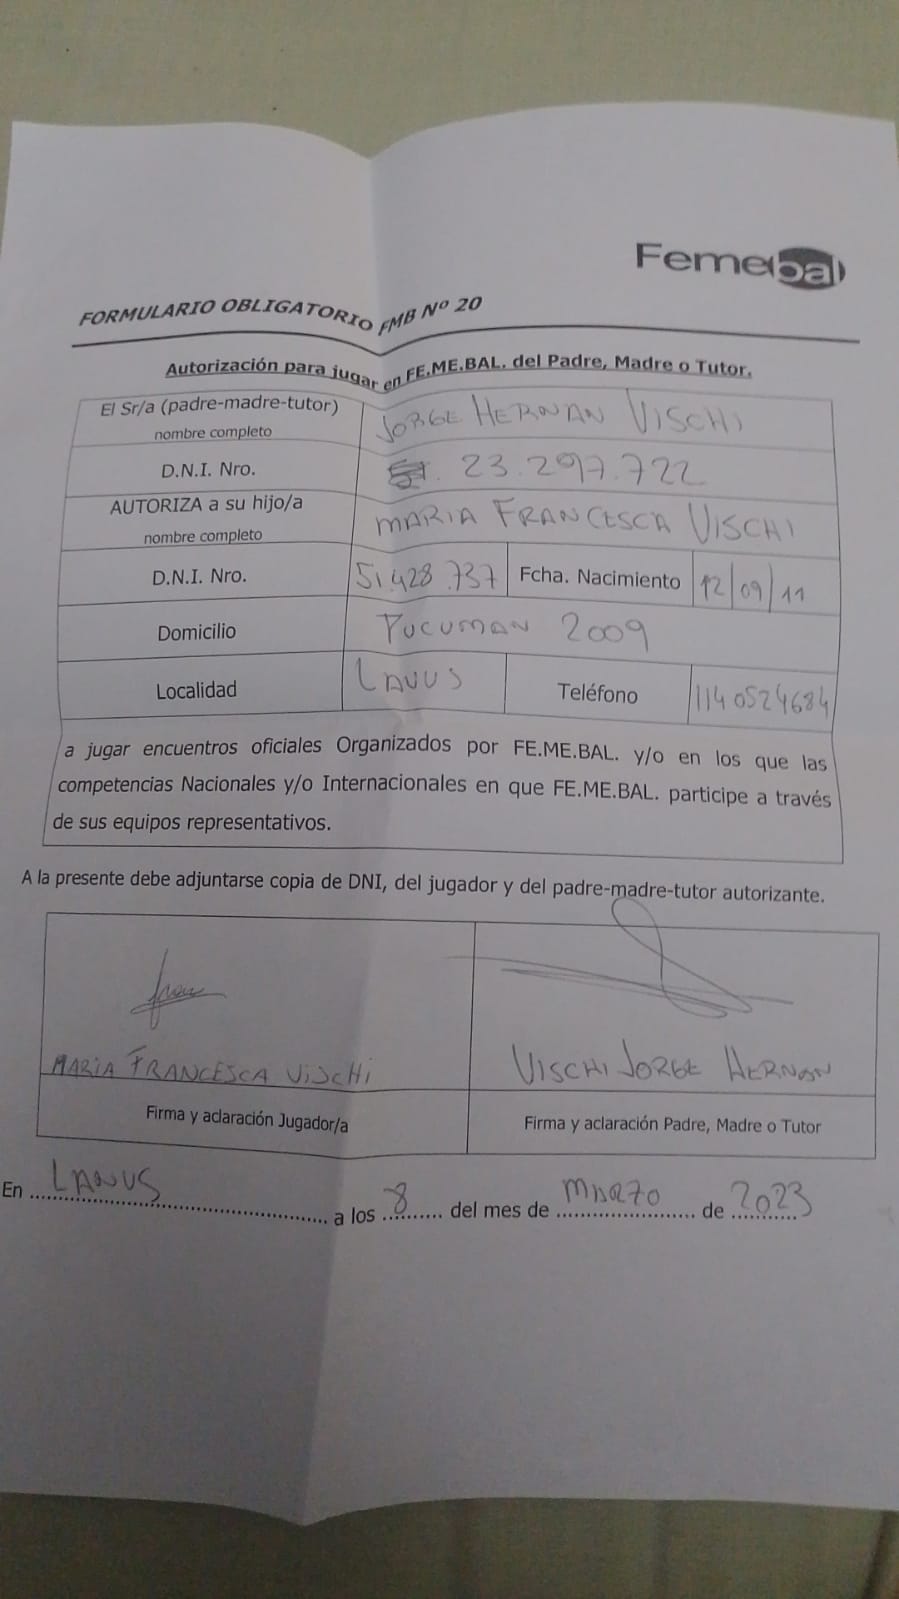 Femebal
FORMULARIO OBLIGATORIO FMB Nº 20
Autorización para jugar en FE.ME.BAL. del Padre, Madre o Tutor.
El Sr/a (padre-madre-tutor)
nombre completo
JORGE HERNAN VISCHI
D.N.I. Nro.
23.297.722
AUTORIZA a su hijo/a
nombre completo
MARIA FRANCESCA VISCHI
D.N.I. Nro.
51.428.737
Fcha. Nacimiento
12/09/11
Domicilio
TUCUMAN 2009
Localidad
LANUS
Teléfono
1140524684
a jugar encuentros oficiales Organizados por FE.ME.BAL. y/o en los que las
competencias Nacionales y/o Internacionales en que FE.ME.BAL. participe a través
de sus equipos representativos.
A la presente debe adjuntarse copia de DNI, del jugador y del padre-madre-tutor autorizante.
MARIA FRANCESCA VISCHI
VISCHI JORGE HERNAN
Firma y aclaración Jugador/a
Firma y aclaración Padre, Madre o Tutor
En LANUS a los 8 del mes de MARZO de 2023